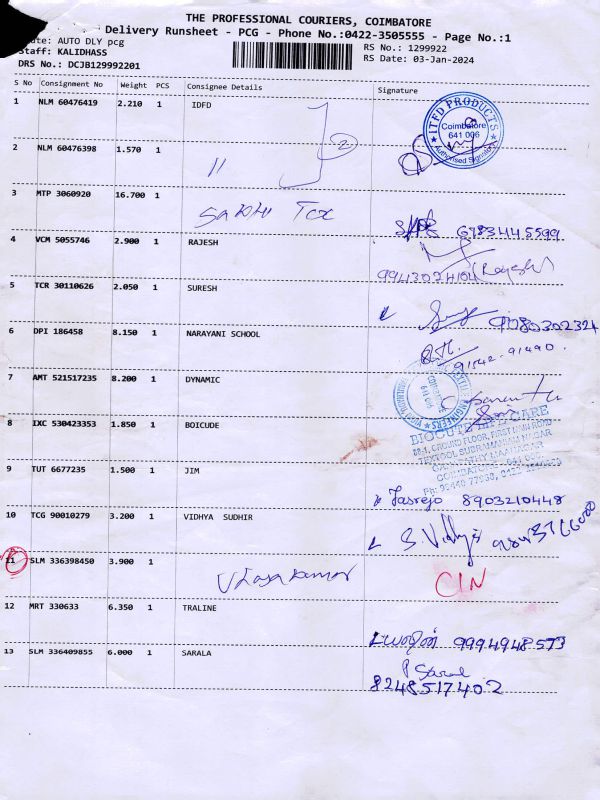 THE PROFESSIONAL COURIERS, COIMBATORE
Delivery Runsheet - PCG - Phone No.:0422-3505555 - Page No.:1
AUTO DLY pcg
Staff: KALIDHASS
RS No.: 1299922
DRS No.: DCJB129992201
RS Date: 03-Jan-2024
S No Consignment No Weight PCS Consignee Details Signature
1 NLM 60476419 2.210 1 IDFD
ITFD PRODUCTS
Coimbatore
641 006
Authorised Signatory
2 NLM 60476398 1.570 1
11
2
3 MTP 3060920 16.700 1
Sakthi Tex
4 VCM 5055746 2.900 1 RAJESH
9943024104 (Rajesh)
5 TCR 30110626 2.050 1 SURESH
6 DPI 186458 8.150 1 NARAYANI SCHOOL
91542-91490.
7 AMT 521517235 8.200 1 DYNAMIC
8 IXC 530423353 1.850 1 BOICUDE
GROUND FLOOR, FIRST MAIN ROAD
9 TUT 6677235 1.500 1 JIM
Jasrejo 8903210448
10 TCG 90010279 3.200 1 VIDHYA SUDHIR
S. Vidhya
11 SLM 336398450 3.900 1
CIN
12 MRT 330633 6.350 1 TRALINE
9994948573
13 SLM 336409855 6.000 1 SARALA
8248517402